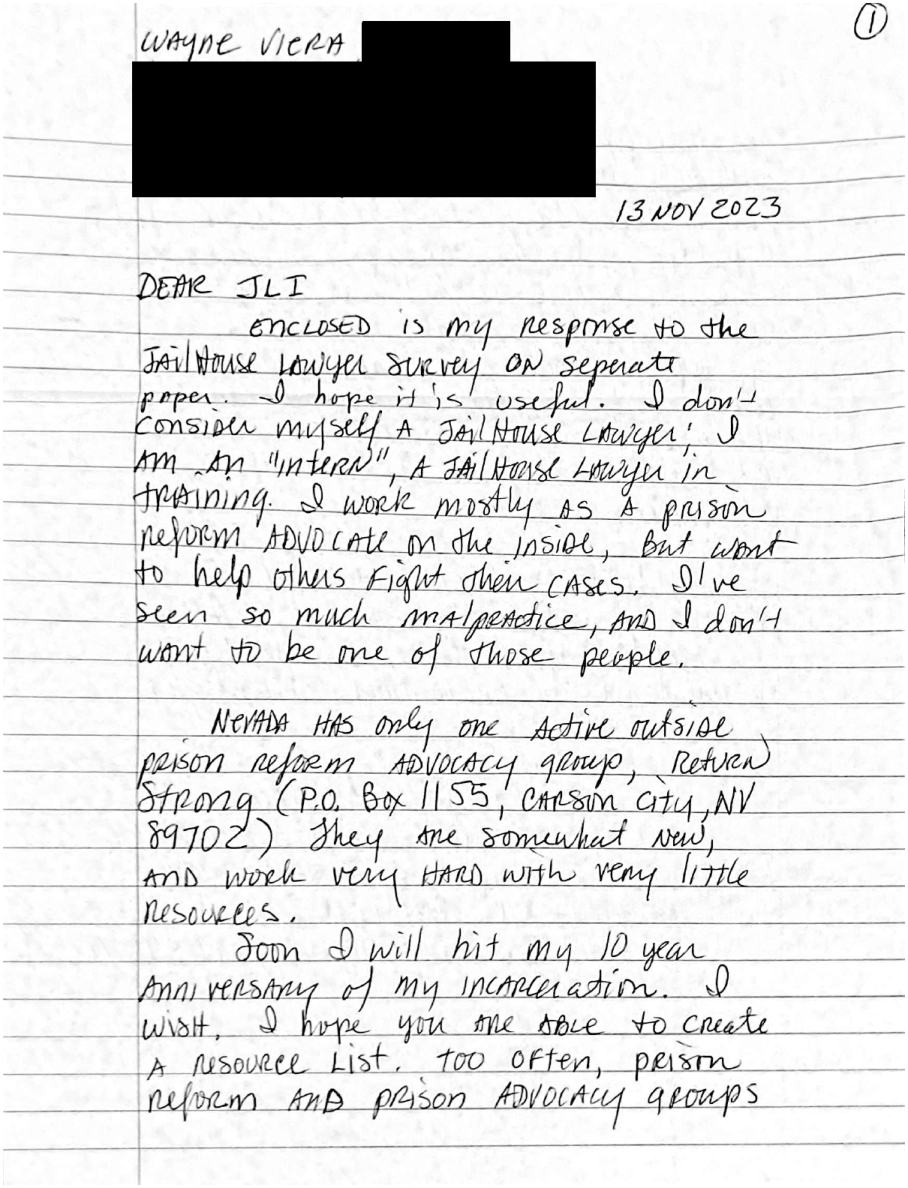 ①
WAYNE VIERA
13 NOV 2023
DEAR JLI
ENCLOSED is my response to the
JailHouse Lawyer Survey on seperate
paper. I hope it is useful. I don't
consider myself A JailHouse Lawyer; I
AM AN "intern", A JailHouse Lawyer in
training. I work mostly as a prison
reform ADVOCATE on the inside, But want
to help others Fight their CASES. I've
seen so much malpractice, AND I don't
want to be one of those people.
NEVADA HAS only one Active outside
prison reform ADVOCACY group, Return
Strong (P.O. Box 1155, CARSON City, NV
89702) They are somewhat new,
AND work very HARD with very little
resources.
Soon I will hit my 10 year
Anniversary of my incarceration. I
wish. I hope you are ABLE to create
A resource List. Too often, prison
reform AND prison ADVOCACY groups